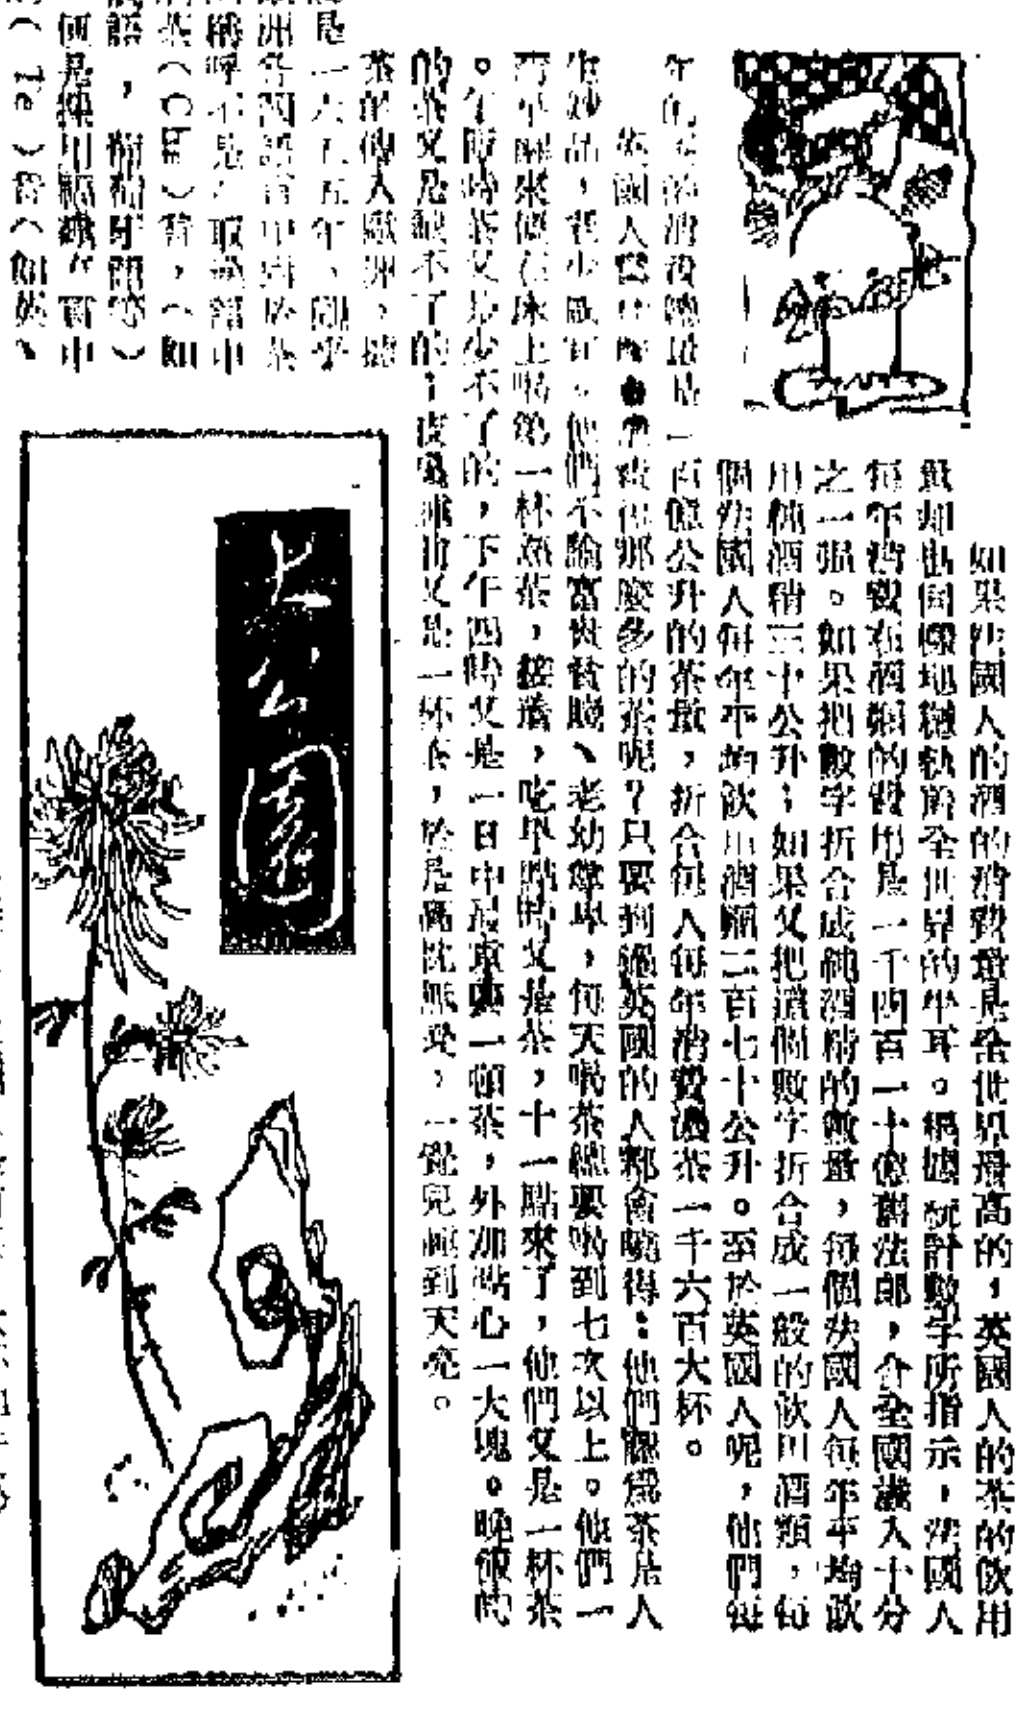 如果法國人的酒的消費量是全世界最高的，英國人的茶的飲用
量却也同樣地穩執於全世界的牛耳。根據統計數字所指示，法國人
每年消費在酒類的費用是一千四百一十億舊法郎，合全國歲入十分
之一强。如果把數字折合成純酒精的數量，每個法國人每年平均飲
用純酒精三十公升；如果又把這個數字折合成一般的飲用酒類，每
個法國人每年平均飲用酒類二百七十公升。至於英國人呢，他們每
年的茶的消費總量是一百億公升的茶量，折合每人每年消費濃茶一千六百大杯。
英國人爲什麽會消費得那麽多的茶呢？只要到過英國的人都會曉得：他們認爲茶是人
生妙品，老少咸宜。他們不論富貴貧賤、老幼尊卑，每天喝茶總要喝到七次以上。他們一
清早醒來便在床上喝第一杯熱茶，接着，吃早點時又是茶，十一點來了，他們又是一杯茶
。午飯時茶又是少不了的，下午四時又是一日中最重要一頓茶，外加點心一大塊。晚飯時
的茶又是缺不了的；夜裏睡前又是一杯茶，於是高枕無憂，一覺兒睡到天亮。
茶的傳入歐洲，據
是一六五五年，
洲各國語言中對於茶
稱呼不是採取
茶（Cha）音，（如
語，葡萄牙語等）
便是採用福建方言中
（Te）音（如英、
大公園